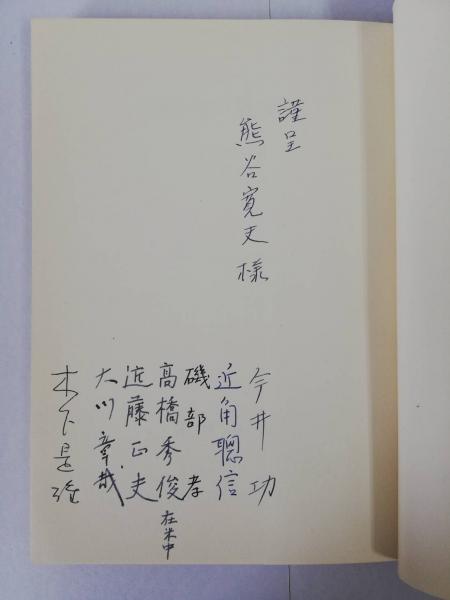 謹呈
熊谷寛夫様
今井功
近角聰信
磯部孝
高橋秀俊在米中
近藤正夫
大川章哉
木下是雄